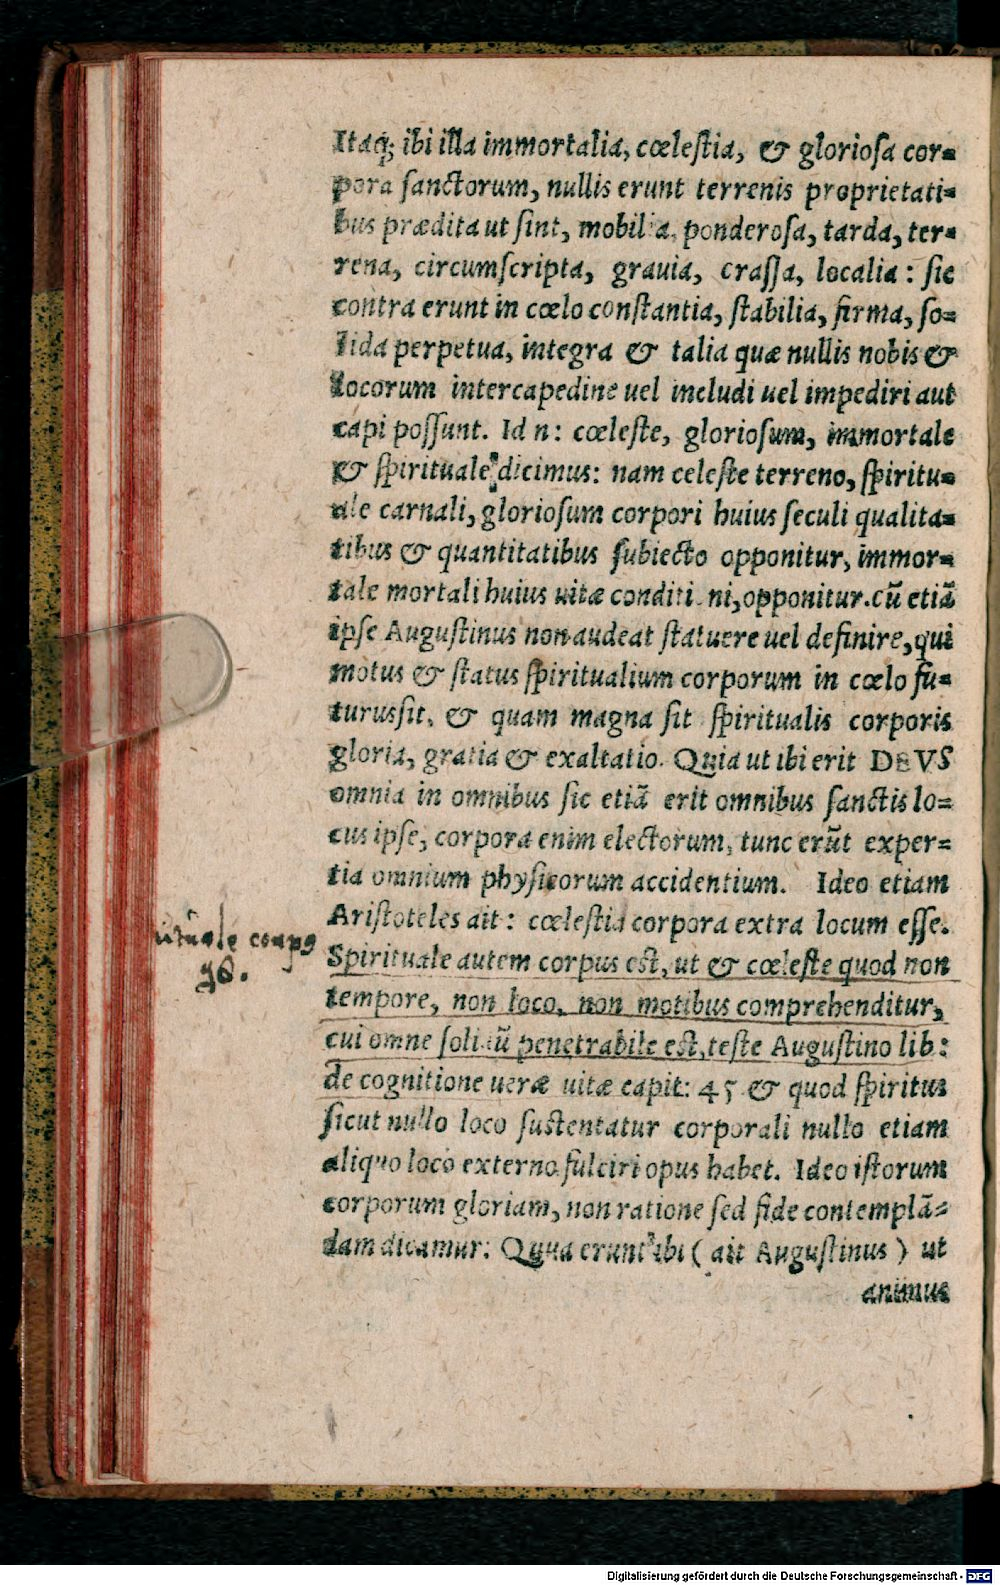 Itaq; ibi illa immortalia, cœlestia, & gloriosa cor=
pora sanctorum, nullis erunt terrenis proprietati=
bus prædita ut sint, mobilia, ponderosa, tarda, ter=
rena, circumscripta, grauia, crassa, localia: sic
contra erunt in cœlo constantia, stabilia, firma, so=
lida perpetua, integra & talia quæ nullis nobis &
locorum intercapedine uel includi uel impediri aut
capi possunt. Id n: cœleste, gloriosum, immortale
& spirituale dicimus: nam celeste terreno, spiritu=
ale carnali, gloriosum corpori huius seculi qualita=
tibus & quantitatibus subiecto opponitur, immor=
tale mortali huius uitæ conditi ni, opponitur. cū etiā
ipse Augustinus non audeat statuere uel definire, qui
motus & status spiritualium corporum in cœlo fu=
turus sit, & quam magna sit spiritualis corporis
gloria, gratia & exaltatio. Quia ut ibi erit DEVS
omnia in omnibus sic etiā erit omnibus sanctis lo=
cus ipse, corpora enim electorum, tunc erūt exper=
tia omnium physicorum accidentium. Ideo etiam
Aristoteles ait: cœlestia corpora extra locum esse.
Spirituale autem corpus est, ut & cœleste quod non
tempore, non loco, non motibus comprehenditur,
cui omne solidū penetrabile est, teste Augustino lib:
de cognitione ueræ uitæ capit: 45 & quod spiritus
sicut nullo loco sustentatur corporali nullo etiam
aliquo loco externo fulciri opus habet. Ideo istorum
corporum gloriam, non ratione sed fide contemplā=
dam dicamur: Quua erunt ibi (ait Augustinus) ut
animus
Digitalisierung gefördert durch die Deutsche Forschungsgemeinschaft - DFG